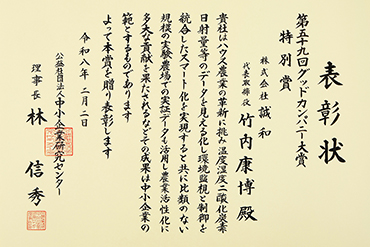 表彰状
第五十九回グッドカンパニー大賞
特別賞
株式会社 誠和
代表取締役 竹内康博 殿
貴社はハウス農業の革新に挑み温度湿度二酸化炭素
日射量等のデータを見える化し環境監視と制御を
統合したスマート化を実現すると共に比類のない
規模の実験農場での実証データも活用し農業活性化に
多大な貢献を果たされるなどその成果は中小企業の
範とするものであります
よって本賞を贈り表彰します
令和八年二月二日
公益社団法人中小企業研究センター
理事長 林 信秀